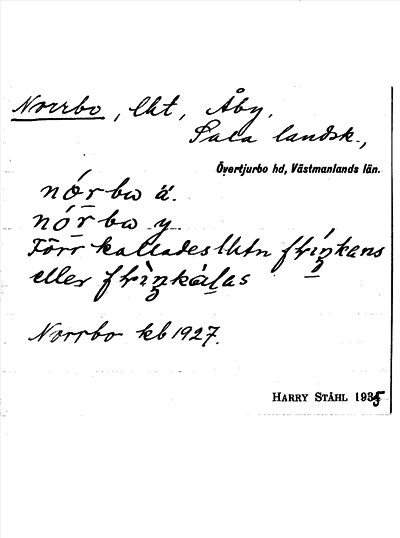 Norrbo, lht, Åby,
Sala landsk.,
Övertjurbo hd, Västmanlands län.
nórbω ä.
nór̄bω y.
Förr kallades lhtn friŋkans
eller frìŋkálas
Norrbo kb 1927.
HARRY STÅHL 1935